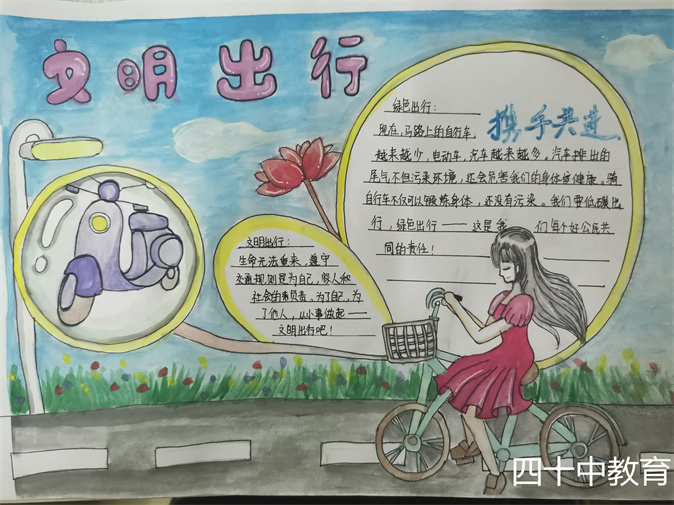 文明出行
绿色出行：
携手共进
现在，马路上的自行车，
越来越少，电动车，汽车越来越多，汽车排出的
尾气不但污染环境，还会危害我们的身体的健康。骑
自行车不仅可以锻炼身体，还没有污染。我们要低碳出
行，绿色出行——这是我 们每个好公民共
同的责任！
文明出行：
生命无法重来，遵守
交通规则是为自己，家人和
社会的负责。为了自己，为
了他人，从小事做起——
文明出行吧！
四十中教育